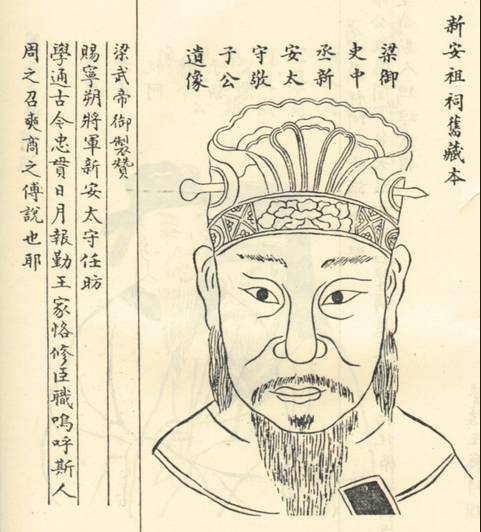 新安祖祠舊藏本
梁御
史中
丞新
安太
守敬
子公
遺像
梁武帝御製贊
賜寧朔將軍新安太守任昉
學通古今忠貫日月報勤王家恪修臣職嗚呼斯人
周之召奭商之傅說也耶